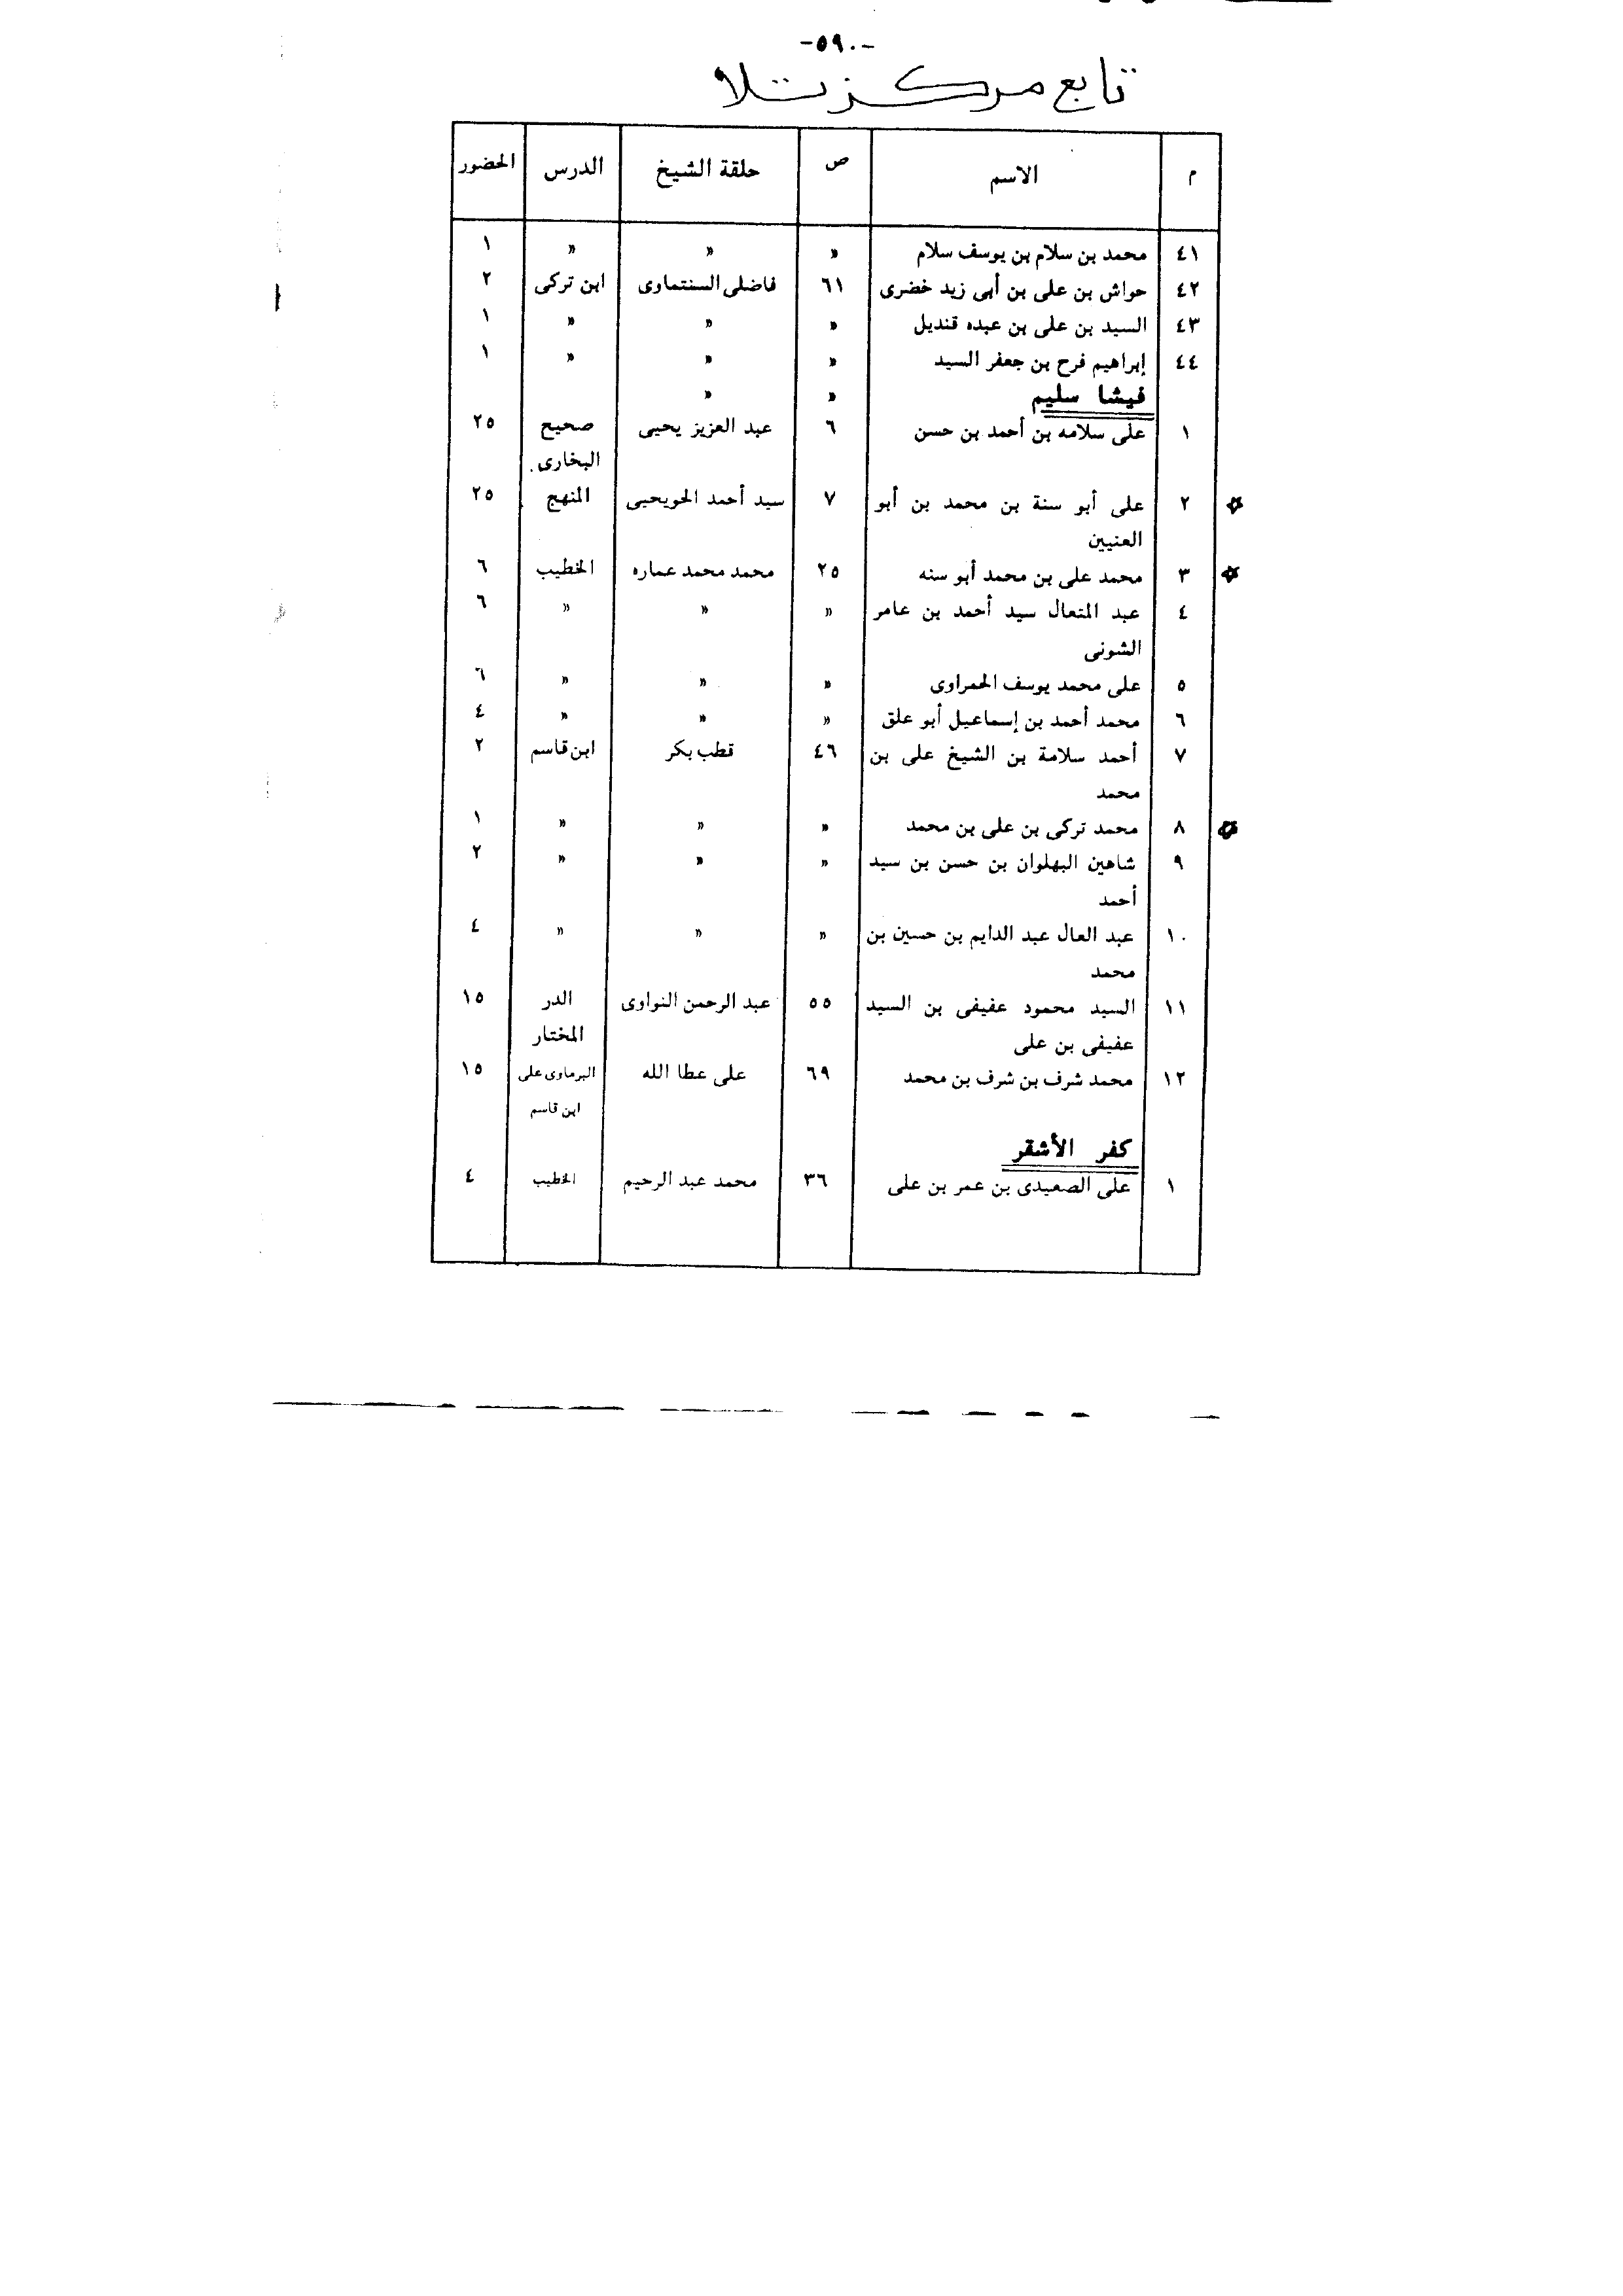 -٥٩٠-
تابع مركز تلا
م الاسم ص حلقة الشيخ الدرس الحضور
٤١ محمد بن سلام بن يوسف سلام » » » ١
٤٢ حواش بن على بن أبى زيد خضرى ٦١ فاضلى السنتماوى ابن تركى ٢
٤٣ السيد بن على بن عبده قنديل » » » ١
٤٤ إبراهيم فرح بن جعفر السيد » » » ١
فيشا سليم » »
١ على سلامه بن أحمد بن حسن ٦ عبد العزيز يحيى صحيح ٢٥
البخارى.
٢ على أبو سنة بن محمد بن أبو ٧ سيد أحمد الحويحيى المنهج ٢٥
العنيين
٣ محمد على بن محمد أبو سنه ٢٥ محمد محمد عماره الخطيب ٦
٤ عبد المتعال سيد أحمد بن عامر » » » ٦
الشونى
٥ على محمد يوسف الحمراوى » » » ٦
٦ محمد أحمد بن إسماعيل أبو علق » » » ٤
٧ أحمد سلامة بن الشيخ على بن ٤٦ قطب بكر ابن قاسم ٢
محمد
٨ محمد تركى بن على بن محمد » » » ١
٩ شاهين البهلوان بن حسن بن سيد » » » ٢
أحمد
١٠ عبد العال عبد الدايم بن حسين بن » » » ٤
محمد
١١ السيد محمود عفيفى بن السيد ٥٥ عبد الرحمن النواوى الدر ١٥
عفيفى بن على المختار
١٢ محمد شرف بن شرف بن محمد ٦٩ على عطا الله البرماوى على ١٥
ابن قاسم
كفر الأشقر
١ على الصعيدى بن عمر بن على ٣٦ محمد عبد الرحيم الخطيب ٤